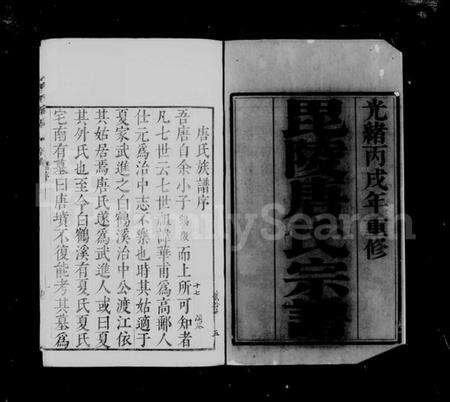 光緒丙戌年重修
毘陵唐氏宗譜
唐氏族譜序
吾唐自余小子鶴徵而上所可知者
凡七世云七世祖諱華甫爲高郵人
仕元爲治中志不樂也時其姑適于
夏家武進之白鶴溪治中公渡江依
其姑居焉唐氏遂爲武進人或曰夏
其外氏也至今白鶴溪有夏氏夏氏
宅南有墓曰唐墳不復能考其墓爲
FamilySearch